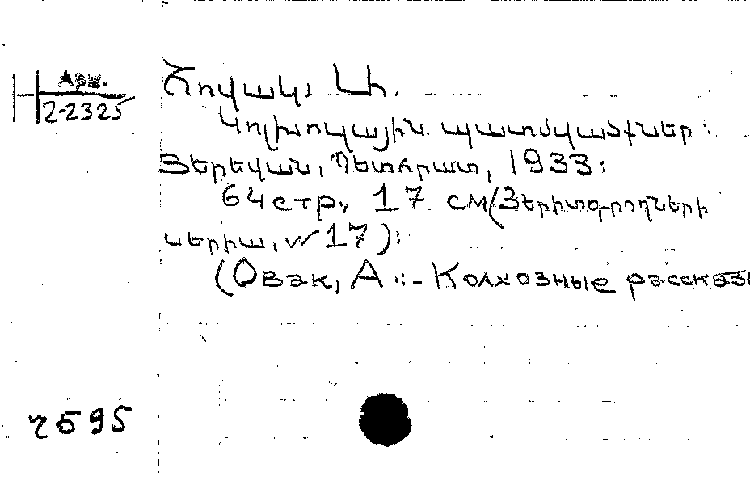 Арм.
2-2325
Հովակ, Ա.
Կոլխոզային պատմվածքներ:
Յերեվան, Պետհրատ, 1933:
64 стр., 17 см (Յերիտգրողների
սերիա, № 17):
(Овак, А.:- Колхозные рассказы
2595